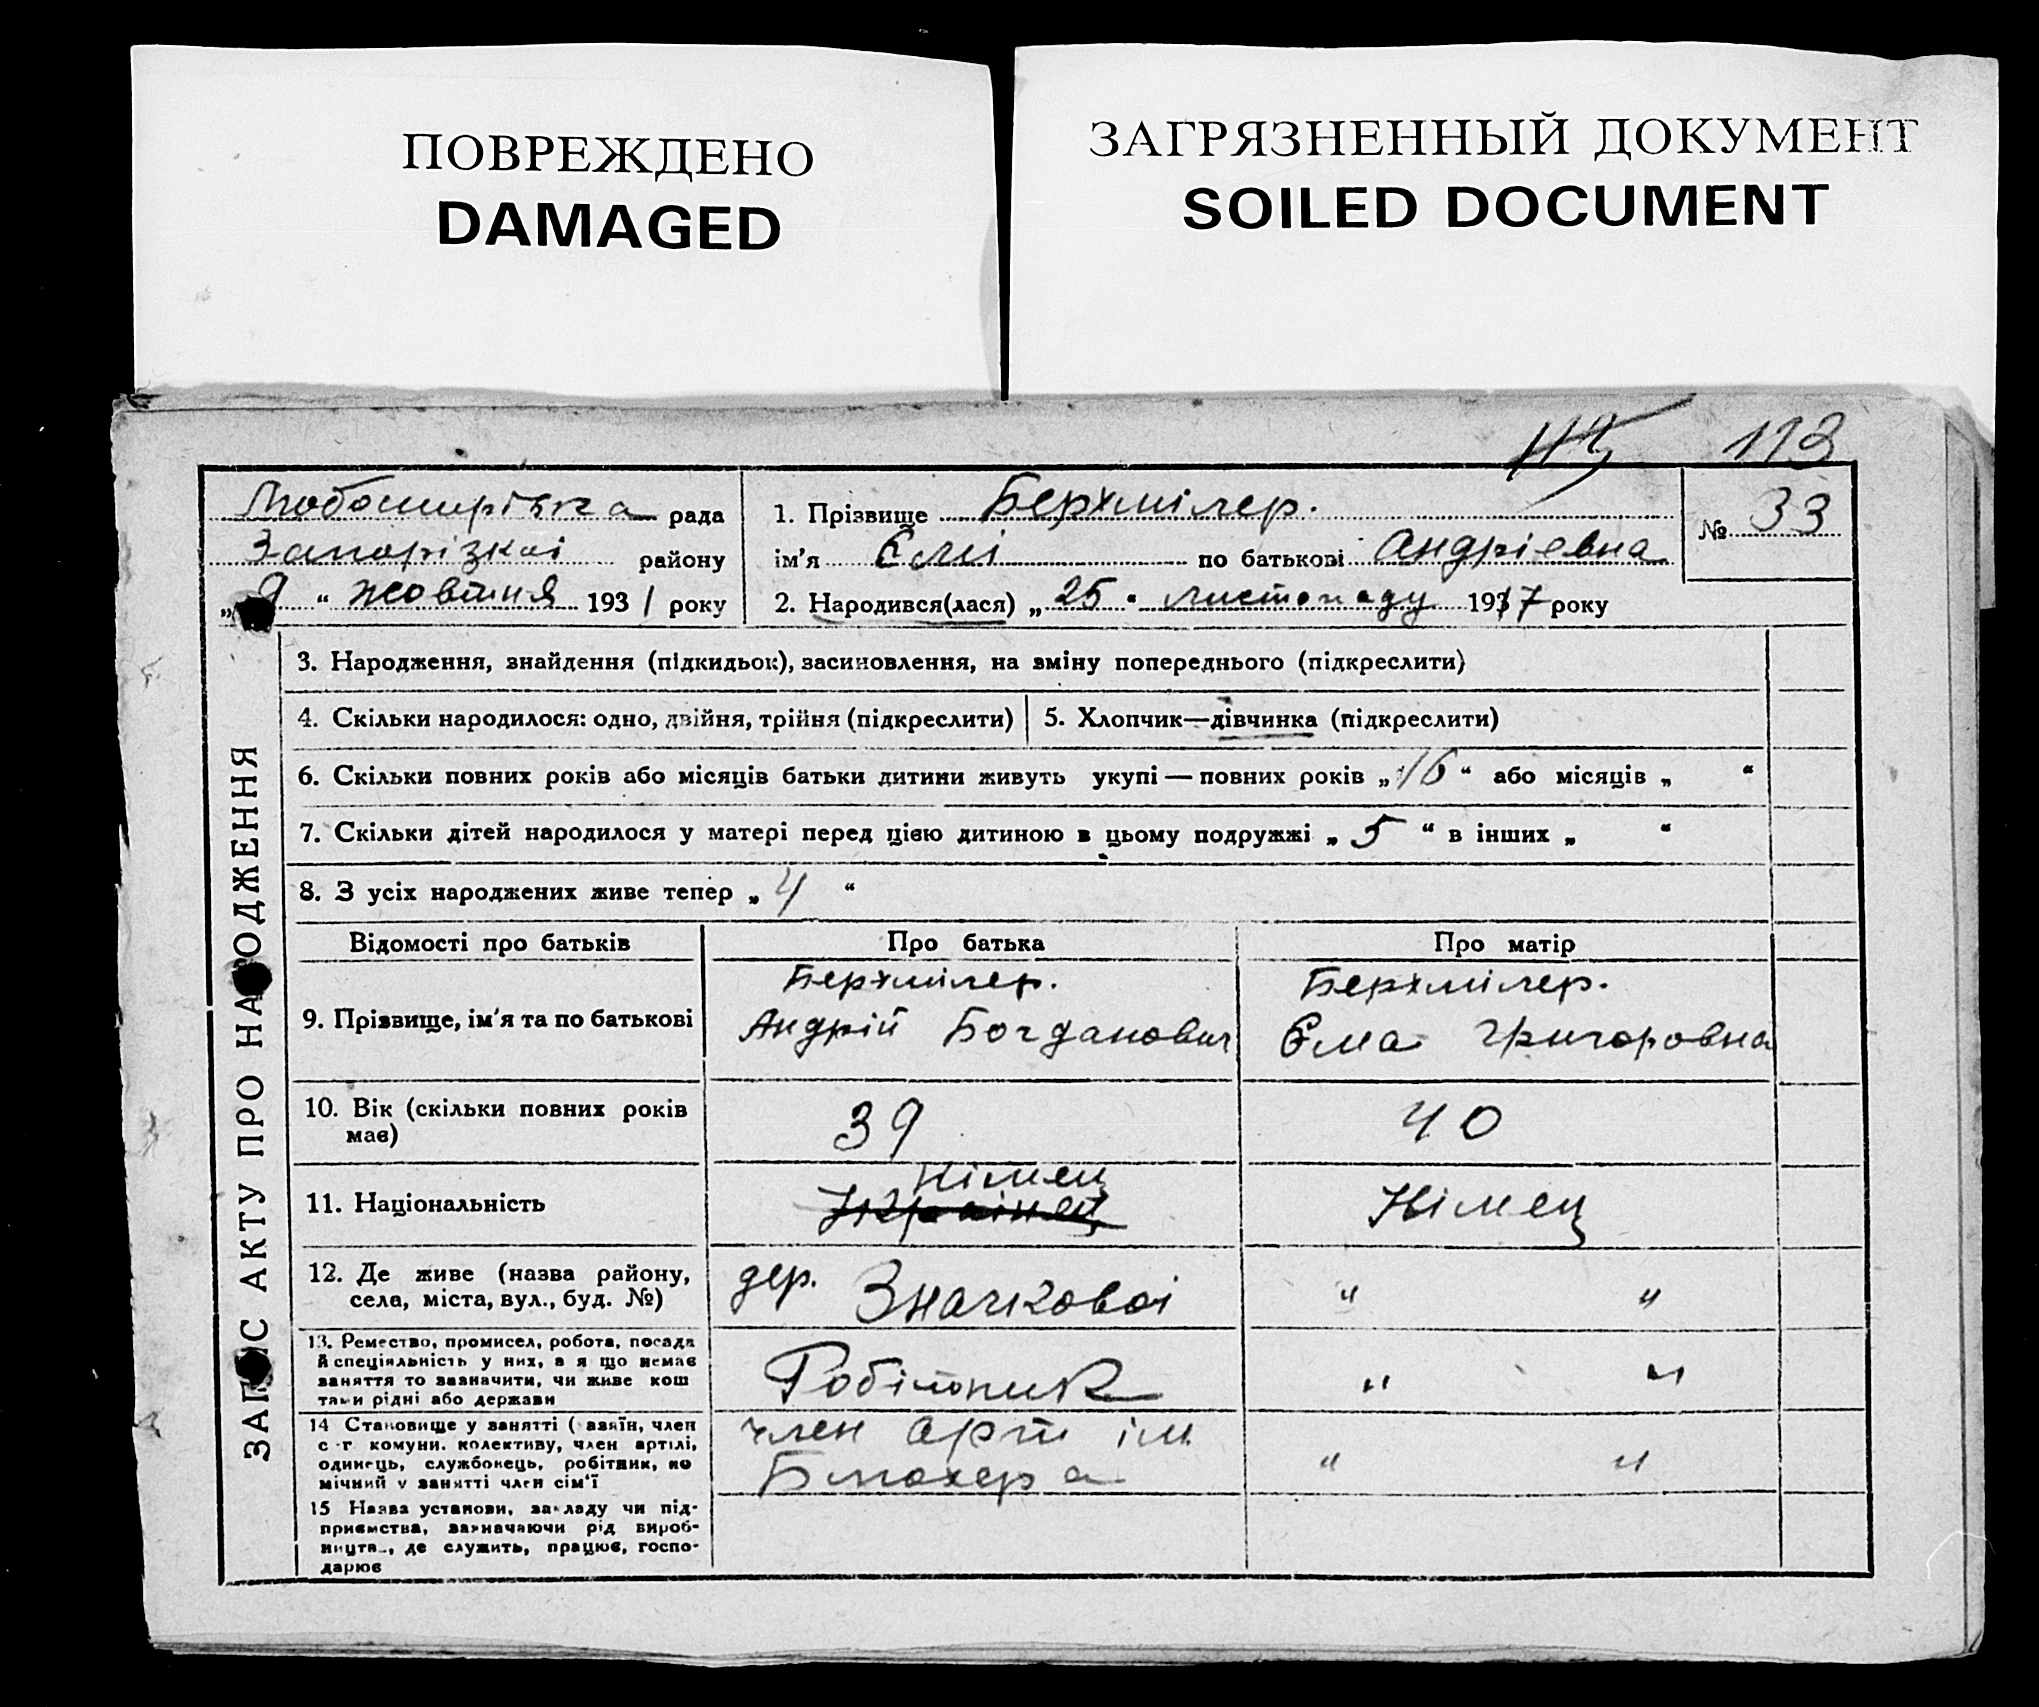 ПОВРЕЖДЕНО
DAMAGED
ЗАГРЯЗНЕННЫЙ ДОКУМЕНТ
SOILED DOCUMENT
113
рада
Запорізкої району
„9“ жовтня 1931 року
1. Прізвище Бергмілер.
ім'я Емі по батькові Андріевна
2. Народився(лася) „25“ листопаду 1917 року
№ 33
ЗАПИС АКТУ ПРО НАРОДЖЕННЯ
3. Народження, знайдення (підкидьок), засиновлення, на зміну попереднього (підкреслити)
4. Скільки народилося: одно, двійня, трійня (підкреслити)
5. Хлопчик—дівчинка (підкреслити)
6. Скільки повних років або місяців батьки дитини живуть укупі — повних років „16“ або місяців „ “
7. Скільки дітей народилося у матері перед цією дитиною в цьому подружжі „5“ в інших „ “
8. З усіх народжених живе тепер „4“
Відомості про батьків
Про батька
Про матір
9. Прізвище, ім'я та по батькові
Бергмілер.
Андрій Богданович
Бергмілер.
Ема Григоровна
10. Вік (скільки повних років
має)
39
40
11. Національність
Німец
Українец
Німец
12. Де живе (назва району,
села, міста, вул., буд. №)
дер. Значковоі
" "
13. Ремество, промисел, робота, посада
й спеціяльність у них, а я що немає
заняття то зазначити, чи живе кош
тами рідні або держави
Робітник
" "
14 Становище у занятті ( азяїн, член
с -г комуни. колективу, член артілі,
одинець, службовець, робітник, по
мічний у занятті член сім'ї
член арт ім
" "
15 Назва установи, закладу чи під-
приємства, зазначаючи рід вироб-
ництв., де служить, працює, госпо-
дарює